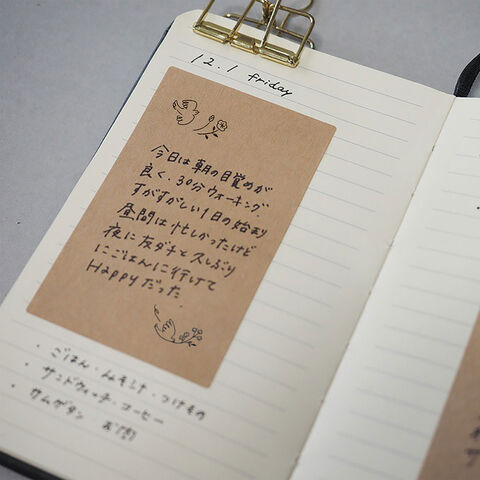 12.1 friday
今日は朝の目覚めが
良く、30分ウォーキング。
すがすがしい1日の始まり
昼間は忙しかったけど
夜に友ダチと久しぶり
にごはんに行けて
Happyだった
・ごはん・みそシル・つけもの
・サンドウィッチ・コーヒー
・サムゲタン